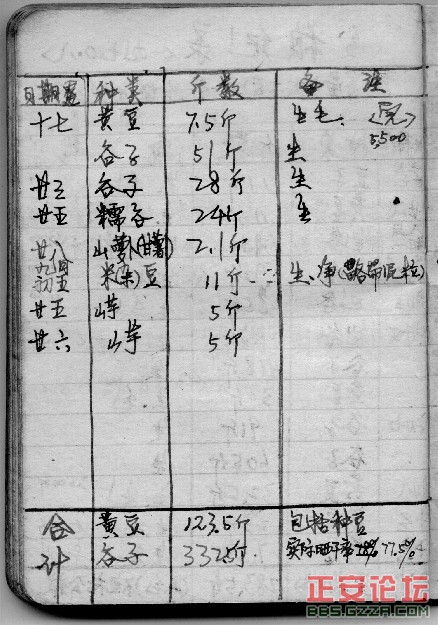 日期 种类 斤数 备注
十七 黄豆 7.5斤 生毛.
5,500
谷子 51斤 生
廿三 谷子 28斤 生
廿五 糯谷 24斤 生
廿八 山萝卜(甘薯) 2.1斤
豆 11斤 生、净(略带泥粒)
廿五 山芋 5斤
廿六 山芋 5斤
合计 黄豆 123.5斤 包括种豆
谷子 332.5斤
正安论坛
BBS.GZZA.COM